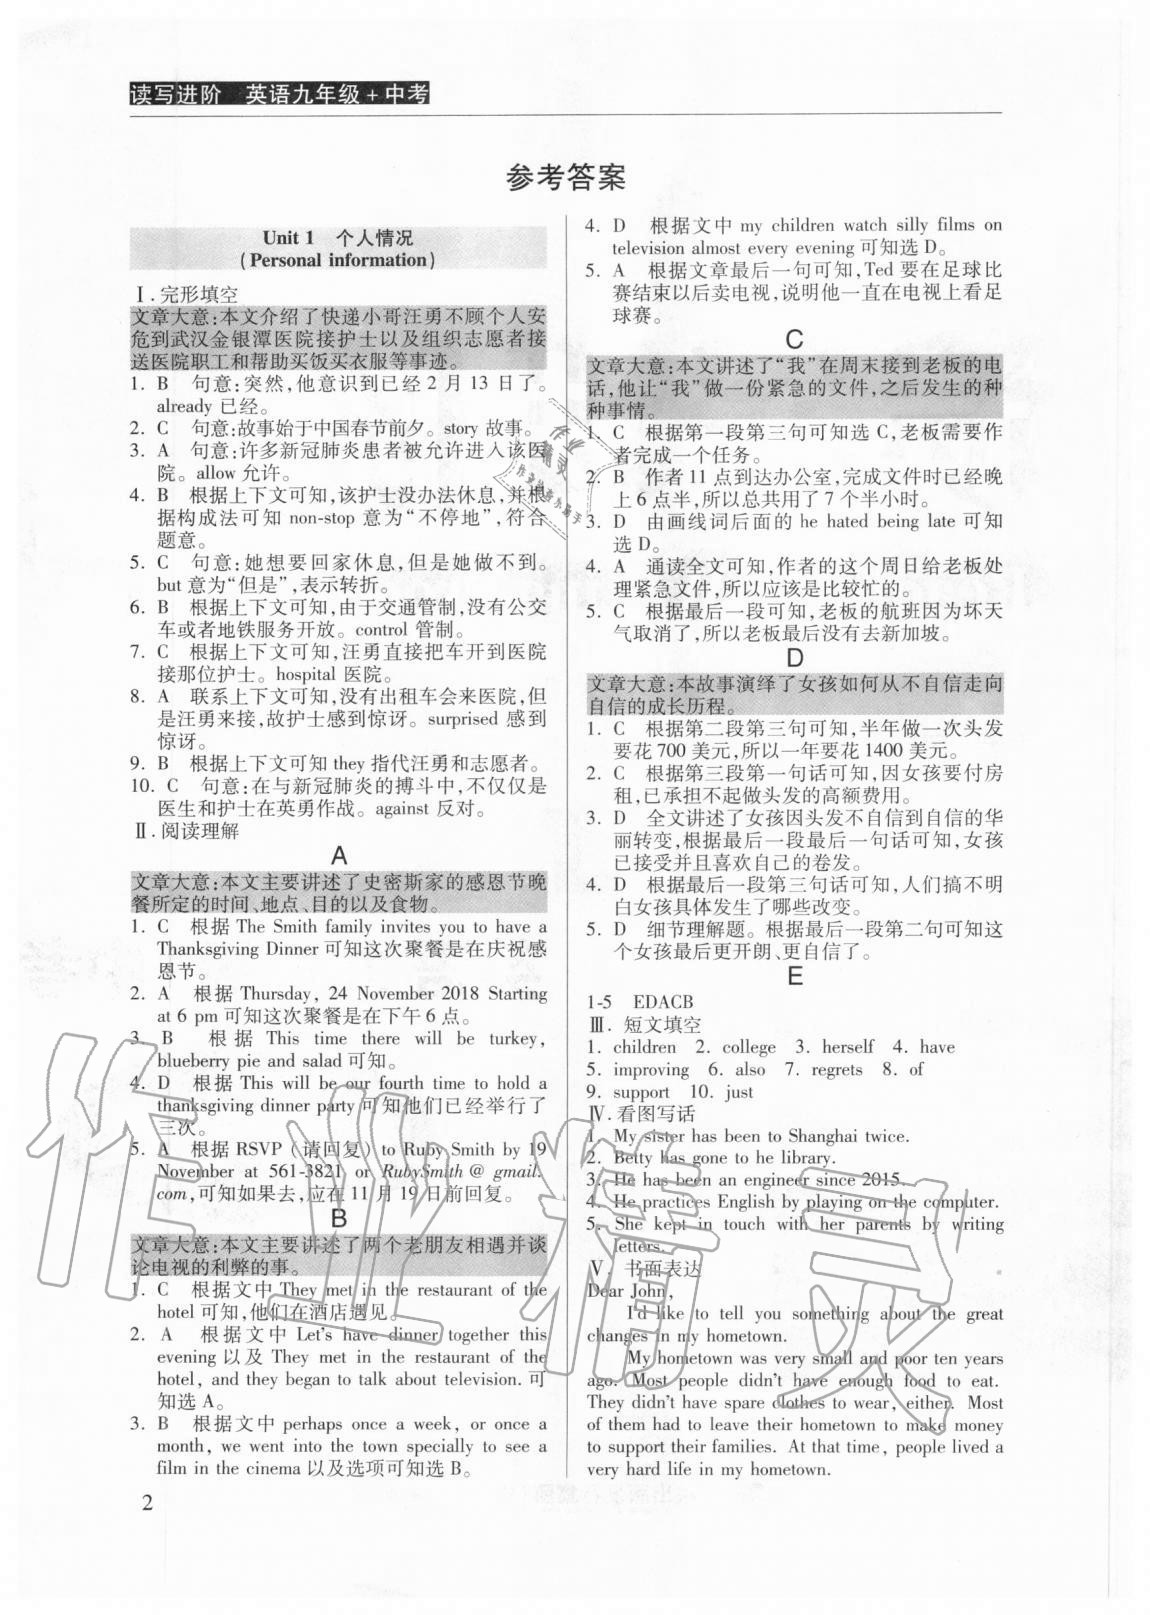 读写进阶 英语九年级+中考
参考答案
Unit 1 个人情况
(Personal information)
Ⅰ.完形填空
文章大意:本文介绍了快递小哥汪勇不顾个人安
危到武汉金银潭医院接护士以及组织志愿者接
送医院职工和帮助买饭买衣服等事迹。
1. B 句意:突然,他意识到已经2月13日了。
already 已经。
2. C 句意:故事始于中国春节前夕。story 故事。
3. A 句意:许多新冠肺炎患者被允许进入该医
院。allow 允许。
4. B 根据上下文可知,该护士没办法休息,并根
据构成法可知 non-stop 意为“不停地”,符合
题意。
5. C 句意:她想要回家休息,但是她做不到。
but 意为“但是”,表示转折。
6. B 根据上下文可知,由于交通管制,没有公交
车或者地铁服务开放。control 管制。
7. C 根据上下文可知,汪勇直接把车开到医院
接那位护士。hospital 医院。
8. A 联系上下文可知,没有出租车会来医院,但
是汪勇来接,故护士感到惊讶。surprised 感到
惊讶。
9. B 根据上下文可知 they 指代汪勇和志愿者。
10. C 句意:在与新冠肺炎的搏斗中,不仅仅是
医生和护士在英勇作战。against 反对。
Ⅱ.阅读理解
A
文章大意:本文主要讲述了史密斯家的感恩节晚
餐所定的时间、地点、目的以及食物。
1. C 根据 The Smith family invites you to have a
Thanksgiving Dinner 可知这次聚餐是在庆祝感
恩节。
2. A 根据 Thursday, 24 November 2018 Starting
at 6 pm 可知这次聚餐是在下午6点。
3. B 根据 This time there will be turkey,
blueberry pie and salad 可知。
4. D 根据 This will be our fourth time to hold a
thanksgiving dinner party 可知他们已经举行了
三次。
5. A 根据 RSVP (请回复) to Ruby Smith by 19
November at 561-3821 or RubySmith@gmail.
com,可知如果去,应在11月19日前回复。
B
文章大意:本文主要讲述了两个老朋友相遇并谈
论电视的利弊的事。
1. C 根据文中 They met in the restaurant of the
hotel 可知,他们在酒店遇见。
2. A 根据文中 Let's have dinner together this
evening 以及 They met in the restaurant of the
hotel, and they began to talk about television. 可
知选A。
3. B 根据文中 perhaps once a week, or once a
month, we went into the town specially to see a
film in the cinema 以及选项可知选B。
2
4. D 根据文中 my children watch silly films on
television almost every evening 可知选D。
5. A 根据文章最后一句可知,Ted 要在足球比
赛结束以后卖电视,说明他一直在电视上看足
球赛。
C
文章大意:本文讲述了“我”在周末接到老板的电
话,他让“我”做一份紧急的文件,之后发生的种
种事情。
1. C 根据第一段第三句可知选C,老板需要作
者完成一个任务。
2. B 作者11点到达办公室,完成文件时已经晚
上6点半,所以总共用了7个半小时。
3. D 由画线词后面的 he hated being late 可知
选D。
4. A 通读全文可知,作者的这个周日给老板处
理紧急文件,所以应该是比较忙的。
5. C 根据最后一段可知,老板的航班因为坏天
气取消了,所以老板最后没有去新加坡。
D
文章大意:本故事演绎了女孩如何从不自信走向
自信的成长历程。
1. C 根据第二段第三句可知,半年做一次头发
要花700美元,所以一年要花1400美元。
2. C 根据第三段第一句话可知,因女孩要付房
租,已承担不起做头发的高额费用。
3. D 全文讲述了女孩因头发不自信到自信的华
丽转变,根据最后一段最后一句话可知,女孩
已接受并且喜欢自己的卷发。
4. D 根据最后一段第三句话可知,人们搞不明
白女孩具体发生了哪些改变。
5. D 细节理解题。根据最后一段第二句可知这
个女孩最后更开朗、更自信了。
E
1-5 EDACB
Ⅲ. 短文填空
1. children 2. college 3. herself 4. have
5. improving 6. also 7. regrets 8. of
9. support 10. just
Ⅳ.看图写话
1. My sister has been to Shanghai twice.
2. Betty has gone to he library.
3. He has been an engineer since 2015.
4. He practices English by playing on the computer.
5. She kept in touch with her parents by writing
letters.
Ⅴ. 书面表达
Dear John,
I'd like to tell you something about the great
changes in my hometown.
My hometown was very small and poor ten years
ago. Most people didn't have enough food to eat.
They didn't have spare clothes to wear, either. Most
of them had to leave their hometown to make money
to support their families. At that time, people lived a
very hard life in my hometown.
作业精灵
作业
精灵